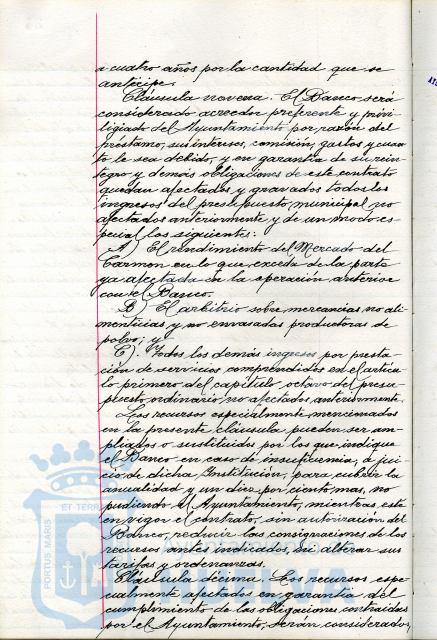 a cuatro años por la cantidad que se
anticipe.
Cláusula novena. El Banco será
considerado acreedor preferente y privi-
ligiado del Ayuntamiento por razón del
préstamo, sus intereses, comisión, gastos y cuan-
to le sea debido, y en garantía de su rein-
tegro y demás obligaciones de este contrato
quedan afectados y gravados todos los
ingresos del presupuesto municipal no
afectados anteriormente y de un modo es-
pecial los siguientes:
A) El rendimiento del Mercado del
Carmen en lo que exceda de la parte
ya afectada en la operación anterior
con el Banco.
B) El arbitrio sobre mercancías no ali-
menticias y no envasadas productoras de
polvo; y
C). Todos los demás ingresos por presta-
ción de servicios comprendidos en el artícu-
lo primero del capítulo octavo del presu-
puesto ordinario, no afectados anteriormente.
Los recursos especialmente mencionados
en la presente cláusula pueden ser am-
pliados o sustituidos por los que indique
el Banco en caso de insuficiencia, a jui-
cio de dicha Institución, para cubrir la
anualidad y un diez por ciento mas, no
pudiendo el Ayuntamiento, mientras esté
en vigor el contrato, sin autorización del
Banco, reducir las consignaciones de los
recursos antes indicados, ni alterar sus
tarifas y ordenanzas.
Cláusula décima. Los recursos espe-
cialmente afectados en garantía del
cumplimiento de las obligaciones contraidas
por el Ayuntamiento, serán considerados
PORTUS MARIS
ET TERRA
Ayuntamiento